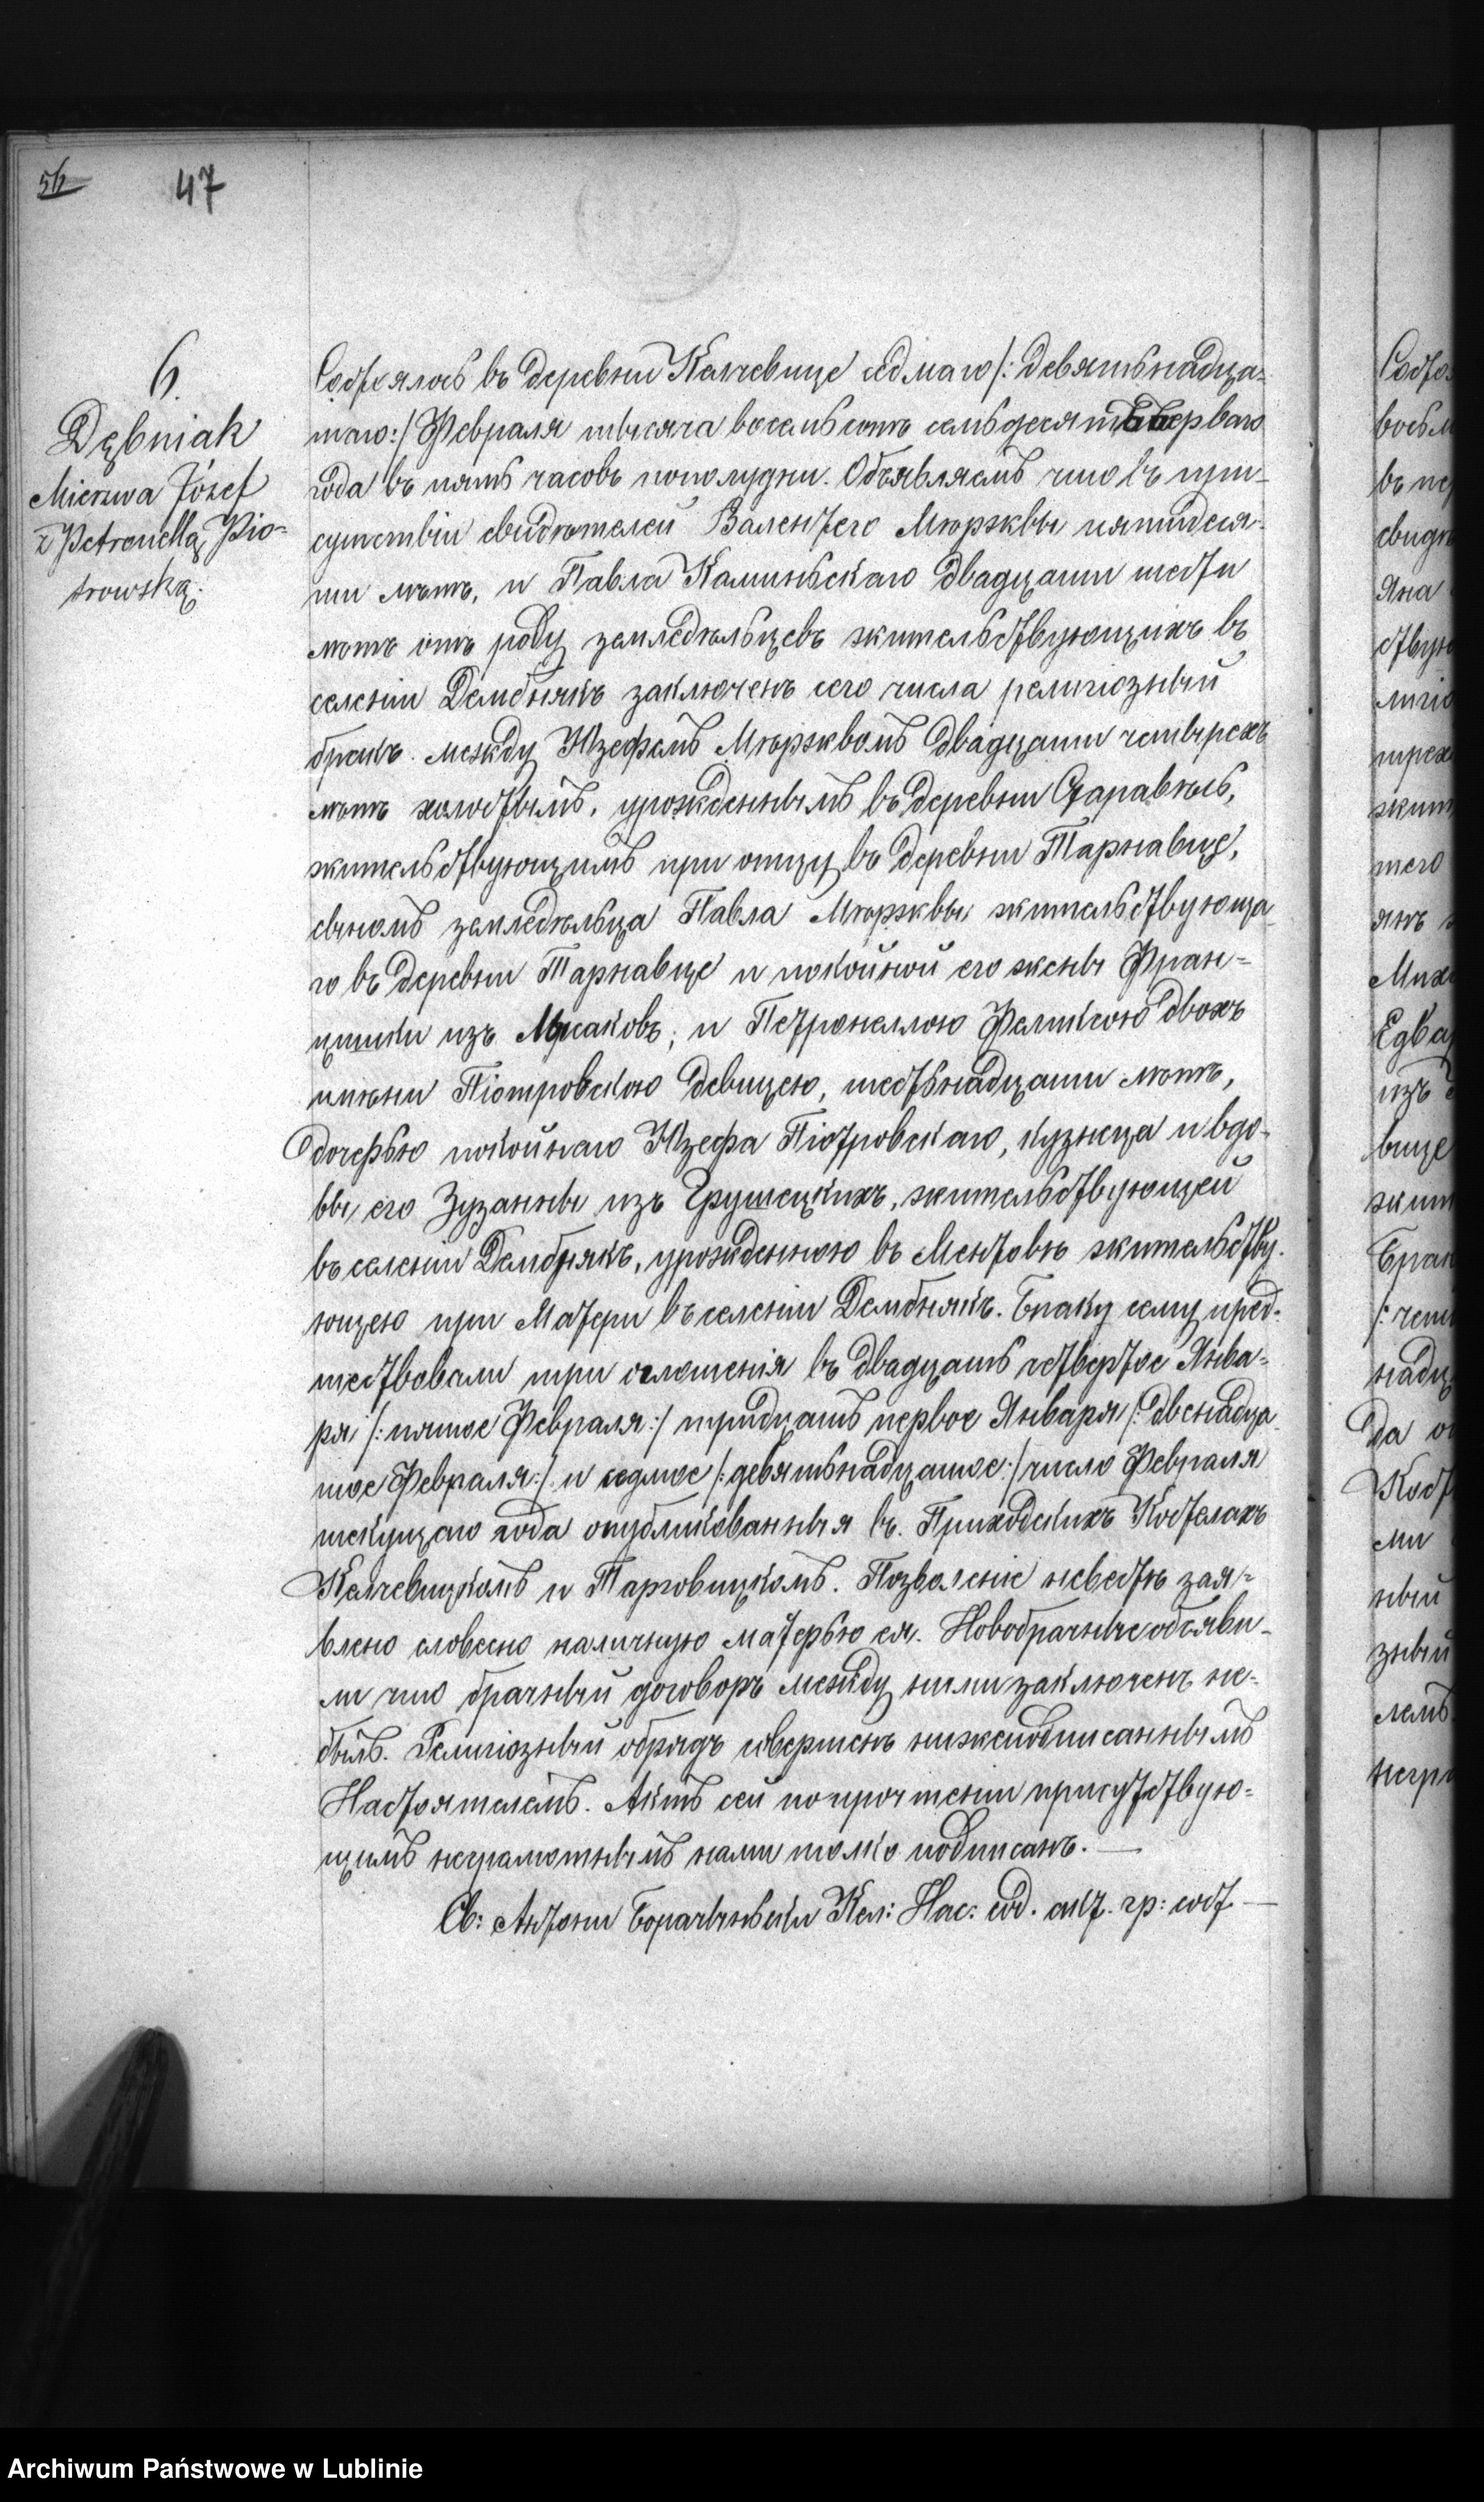 56 47
6.
Dębniak
Mierzwa Józef
z Petronellą Pio-
trowską.
Состоялось въ деревни Келчевице седмаго /: девятьнадца-
таго :/ Февраля тысяча восемьсотъ семьдесятъ перваго
года въ пять часовъ пополудни. Объявляемъ что въ при-
сутствіи свидѣтелей Валентего Мѣржквы пятидеся-
ти лѣтъ, и Павла Каминьскаго двадцати шести
лѣтъ отъ роду земледѣльцевъ жительствующихъ въ
селеніи Дембнякъ заключенъ сего числа религіозный
бракъ между Юзефемъ Мѣржквомъ двадцати четырехъ
лѣтъ холостымъ, урожденнымъ въ деревни Старавесь,
жительствующимъ при отцу въ деревни Тарнавце,
сыномъ земледѣльца Павла Мѣржквы жительствующа-
го въ деревни Тарнавце и покойной его жены Фран-
цишки изъ ; и Петронеллою Феликсою двохъ
имѣни Піотровскою девицею, шестьнадцати лѣтъ,
дочерью покойнаго Юзефа Піотровскаго, кузнеца и вдо-
вы его Зузанны изъ Грушецкихъ, жительствующей
въ селеніи Дембнякъ, урожденною въ Ментовѣ жительству-
ющею при Матери въ селеніи Дембнякъ. Браку сему пред-
шествовали три оглошенія въ двадцать четвертое Янва-
ря /: пятое Февраля :/ тридцать первое Января /: двенадца-
тое Февраля :/ и седмое /: девятьнадцатое :/ число Февраля
текущаго года опубликованныя въ Приходскихъ Костелахъ
Келчевицкомъ и Тарговицкомъ. Позволеніе невестѣ зая-
влено словесно наличную матерью ея. Новобрачные объяви-
ли что брачный договоръ между ними заключенъ не-
былъ. Религіозный обрядъ совершенъ нижеподписаннымъ
Настоятелемъ. Актъ сей попрочтении присутствую-
щимъ неграмотнымъ нами толко подписанъ. —
Кс: Антони Кел: Нас: сод. акт. гр: сост —
Archiwum Państwowe w Lublinie